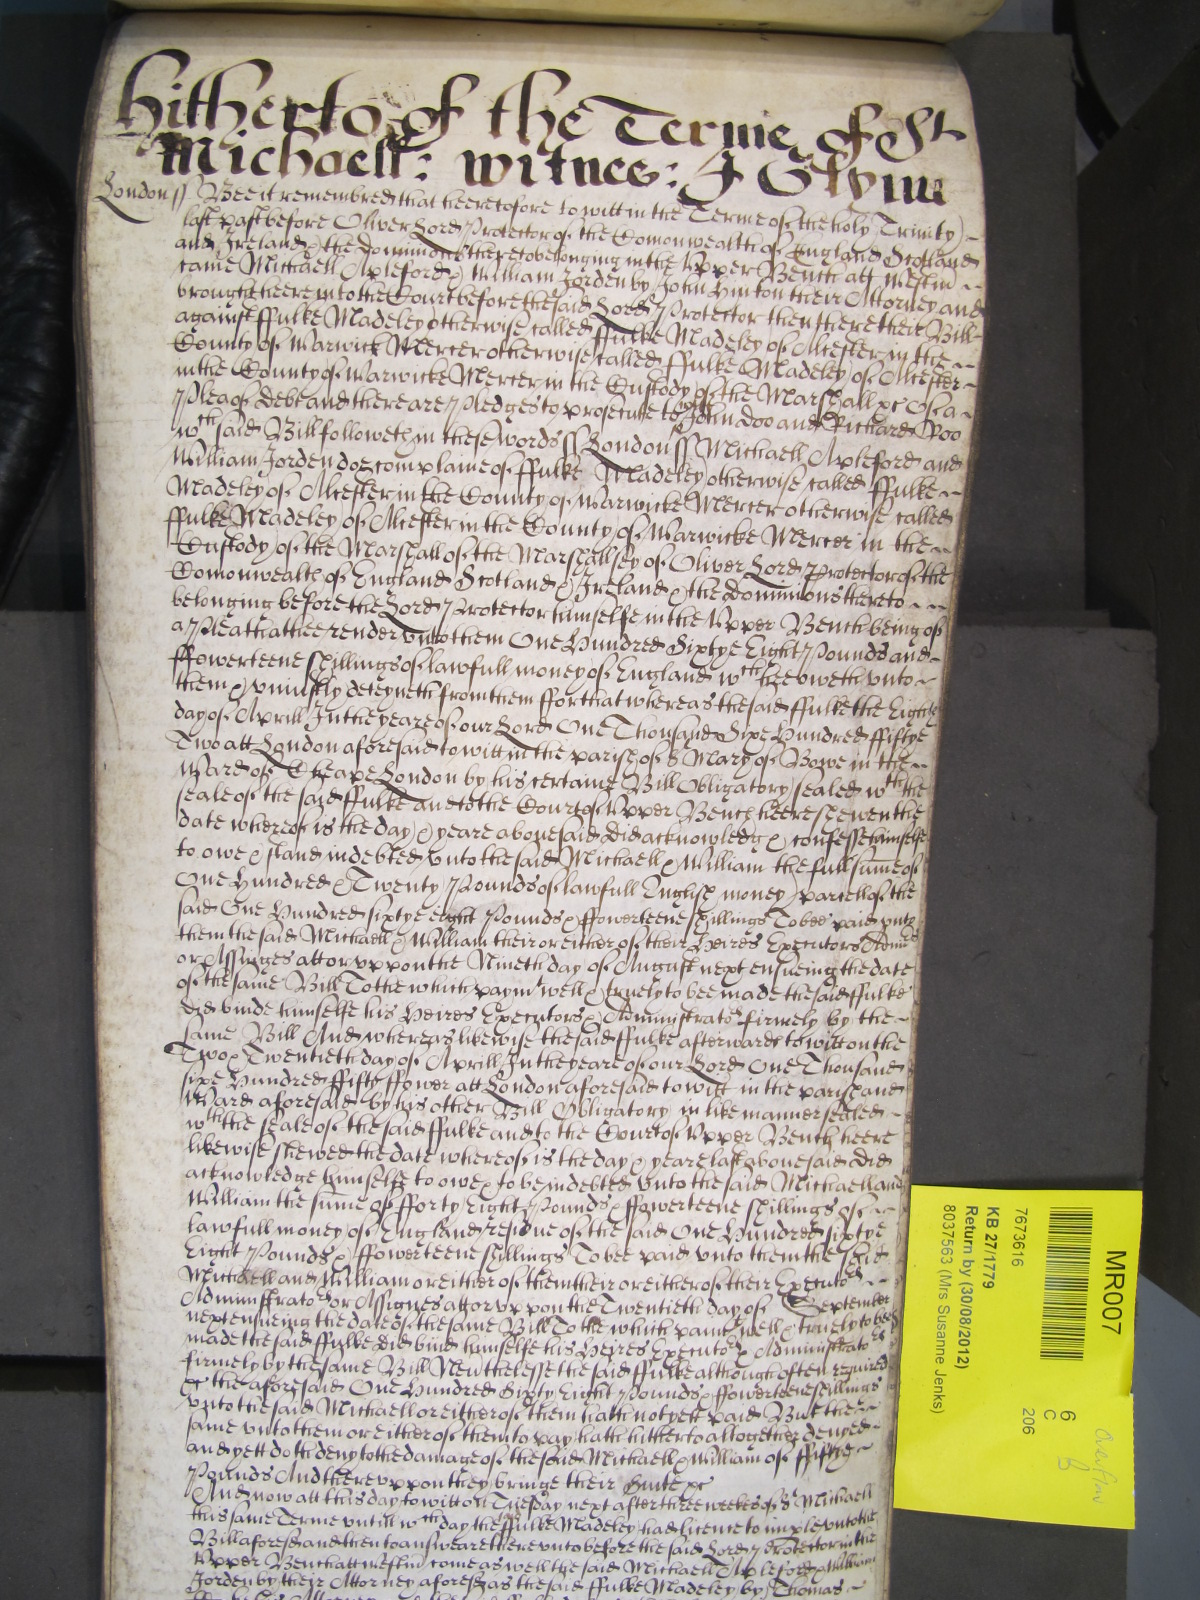 hitherto of the Terme of St
Michaell: witnes: J Glynn
London ss Bee it remembred that heeretofore to witt in the Terme of the holy Trinity
last past before Oliver Lord Protector of the Comonwealth of England Scotland
and Ireland & the Dominions thereto belonging in the Upper Bench att Westm
came Michaell Apleford & William Jorden by John Hinton their Attorney and
brought heere into the Court before the said Lord Protector then there their Bill
against ffulke Madeley otherwise called ffulke Madeley of Alcester in the
County of Warwick Mercer otherwise called ffulke Madeley of Alcester
in the County of Warwicke Mercer in the Custody of the Marshall &c Of a
Plea of Debt and there are Pledges to prosecute to John Doo and Richard Roo
wch said Bill followeth in these words ss London ss Michaell Apleford and
William Jorden doe complaine of ffulke Madeley otherwise called ffulke
Madeley of Alcester in the County of Warwicke Mercer otherwise called
ffulke Madeley of Alcester in the County of Warwicke Mercer in the
Custody of the Marshall of the Marshallsey of Oliver Lord Protector of the
Comonwealth of England Scotland & Ireland & the Dominions thereto
belonging before the Lord Protector himselfe in the Upper Bench being of
a Plea that hee render unto them One Hundred Sixtye Eight Pounds and
ffowerteene shillings of lawfull money of England wch hee oweth unto
them & uniustly deteyneth from them ffor that whereas the said ffulke the Eighth
day of Aprill In the yeare of our Lord One Thousand Sixe Hundred ffiftye
Two att London aforesaid to witt in the parish of S Mary of Bowe in the
Ward of Cheape London by his certaine Bill Obligatory sealed wth the
seale of the said ffulke and to the Court of Upper Bench heere shewen the
date whereof is the day & yeare abovesaid Did acknowledg & confesse himselfe
to owe & stand indebted unto the said Michaell & William the full sume of
One Hundred & Twenty Pounds of lawfull English money parcell of the
said One Hundred sixtye eight Pounds & ffowerteene shillings To bee paid unto
them the said Michaell & William their or either of their Heires Executors Admrs
or Assignes att or uppon the Nineth day of August next ensueing the date
of the same Bill To the which paymt well & truely to bee made the said ffulke
did binde himselfe his Heires Executors & Administrators firmely by the
same Bill And whereas likewise the said ffulke afterwards to witt on the
Two & Twentieth day of Aprill In the yeare of our Lord One Thousand
sixe Hundred ffifty ffower att London aforesaid to witt in the parish and
Ward aforesaid by his other Bill Obligatory in like manner sealed
wth the seale of the said ffulke and to the Court of Upper Bench heere
likewise shewed the date whereof is the day & yeare last abovesaid did
acknowledge himselfe to owe & to be indebted unto the said Michaell and
William the sume of fforty Eight Pounds & ffowerteene shillings of
lawfull money of England residue of the said One Hundred sixtye
Eight Pounds & ffowerteene shillings To bee paid unto them the said
Michaell and William or either of them their or either of their Executors
Administrators or Assignes att or uppon the Twentieth day of September
next ensueing the date of the same Bill To the which paimt well & truely to bee
made the said ffulke did bind himselfe his Heires Executors & Administrators
firmely by the same Bill Neverthelesse the said ffulke although often required
&c the aforesaid One Hundred Sixty Eight Pounds & ffowerteene shillings
unto the said Michaell or either of them hath not yett paid But the
same unto them or either of them to pay hath hitherto altogether denyed
and yett doth deny to the damage of the said Michaell & William of ffiftye
Pounds And thereuppon they bringe their Suite &c
And now att this day to witt on Tuesday next after three weekes of S Michaell
this same Terme untill wch day the said ffulke Madeley had licence to imple unto the
Bill aforesd and then to answeare thereunto before the said Lord Protector in the
Upper Bench att Westm come as well the said Michaell Apleford & William
Jorden by their Attorney aforesd as the said ffulke Madeley by Thomas
MR007
7673616
KB 27/1779
Return by (30/08/2012)
8037563 (Mrs Susanne Jenks)
6
C
206